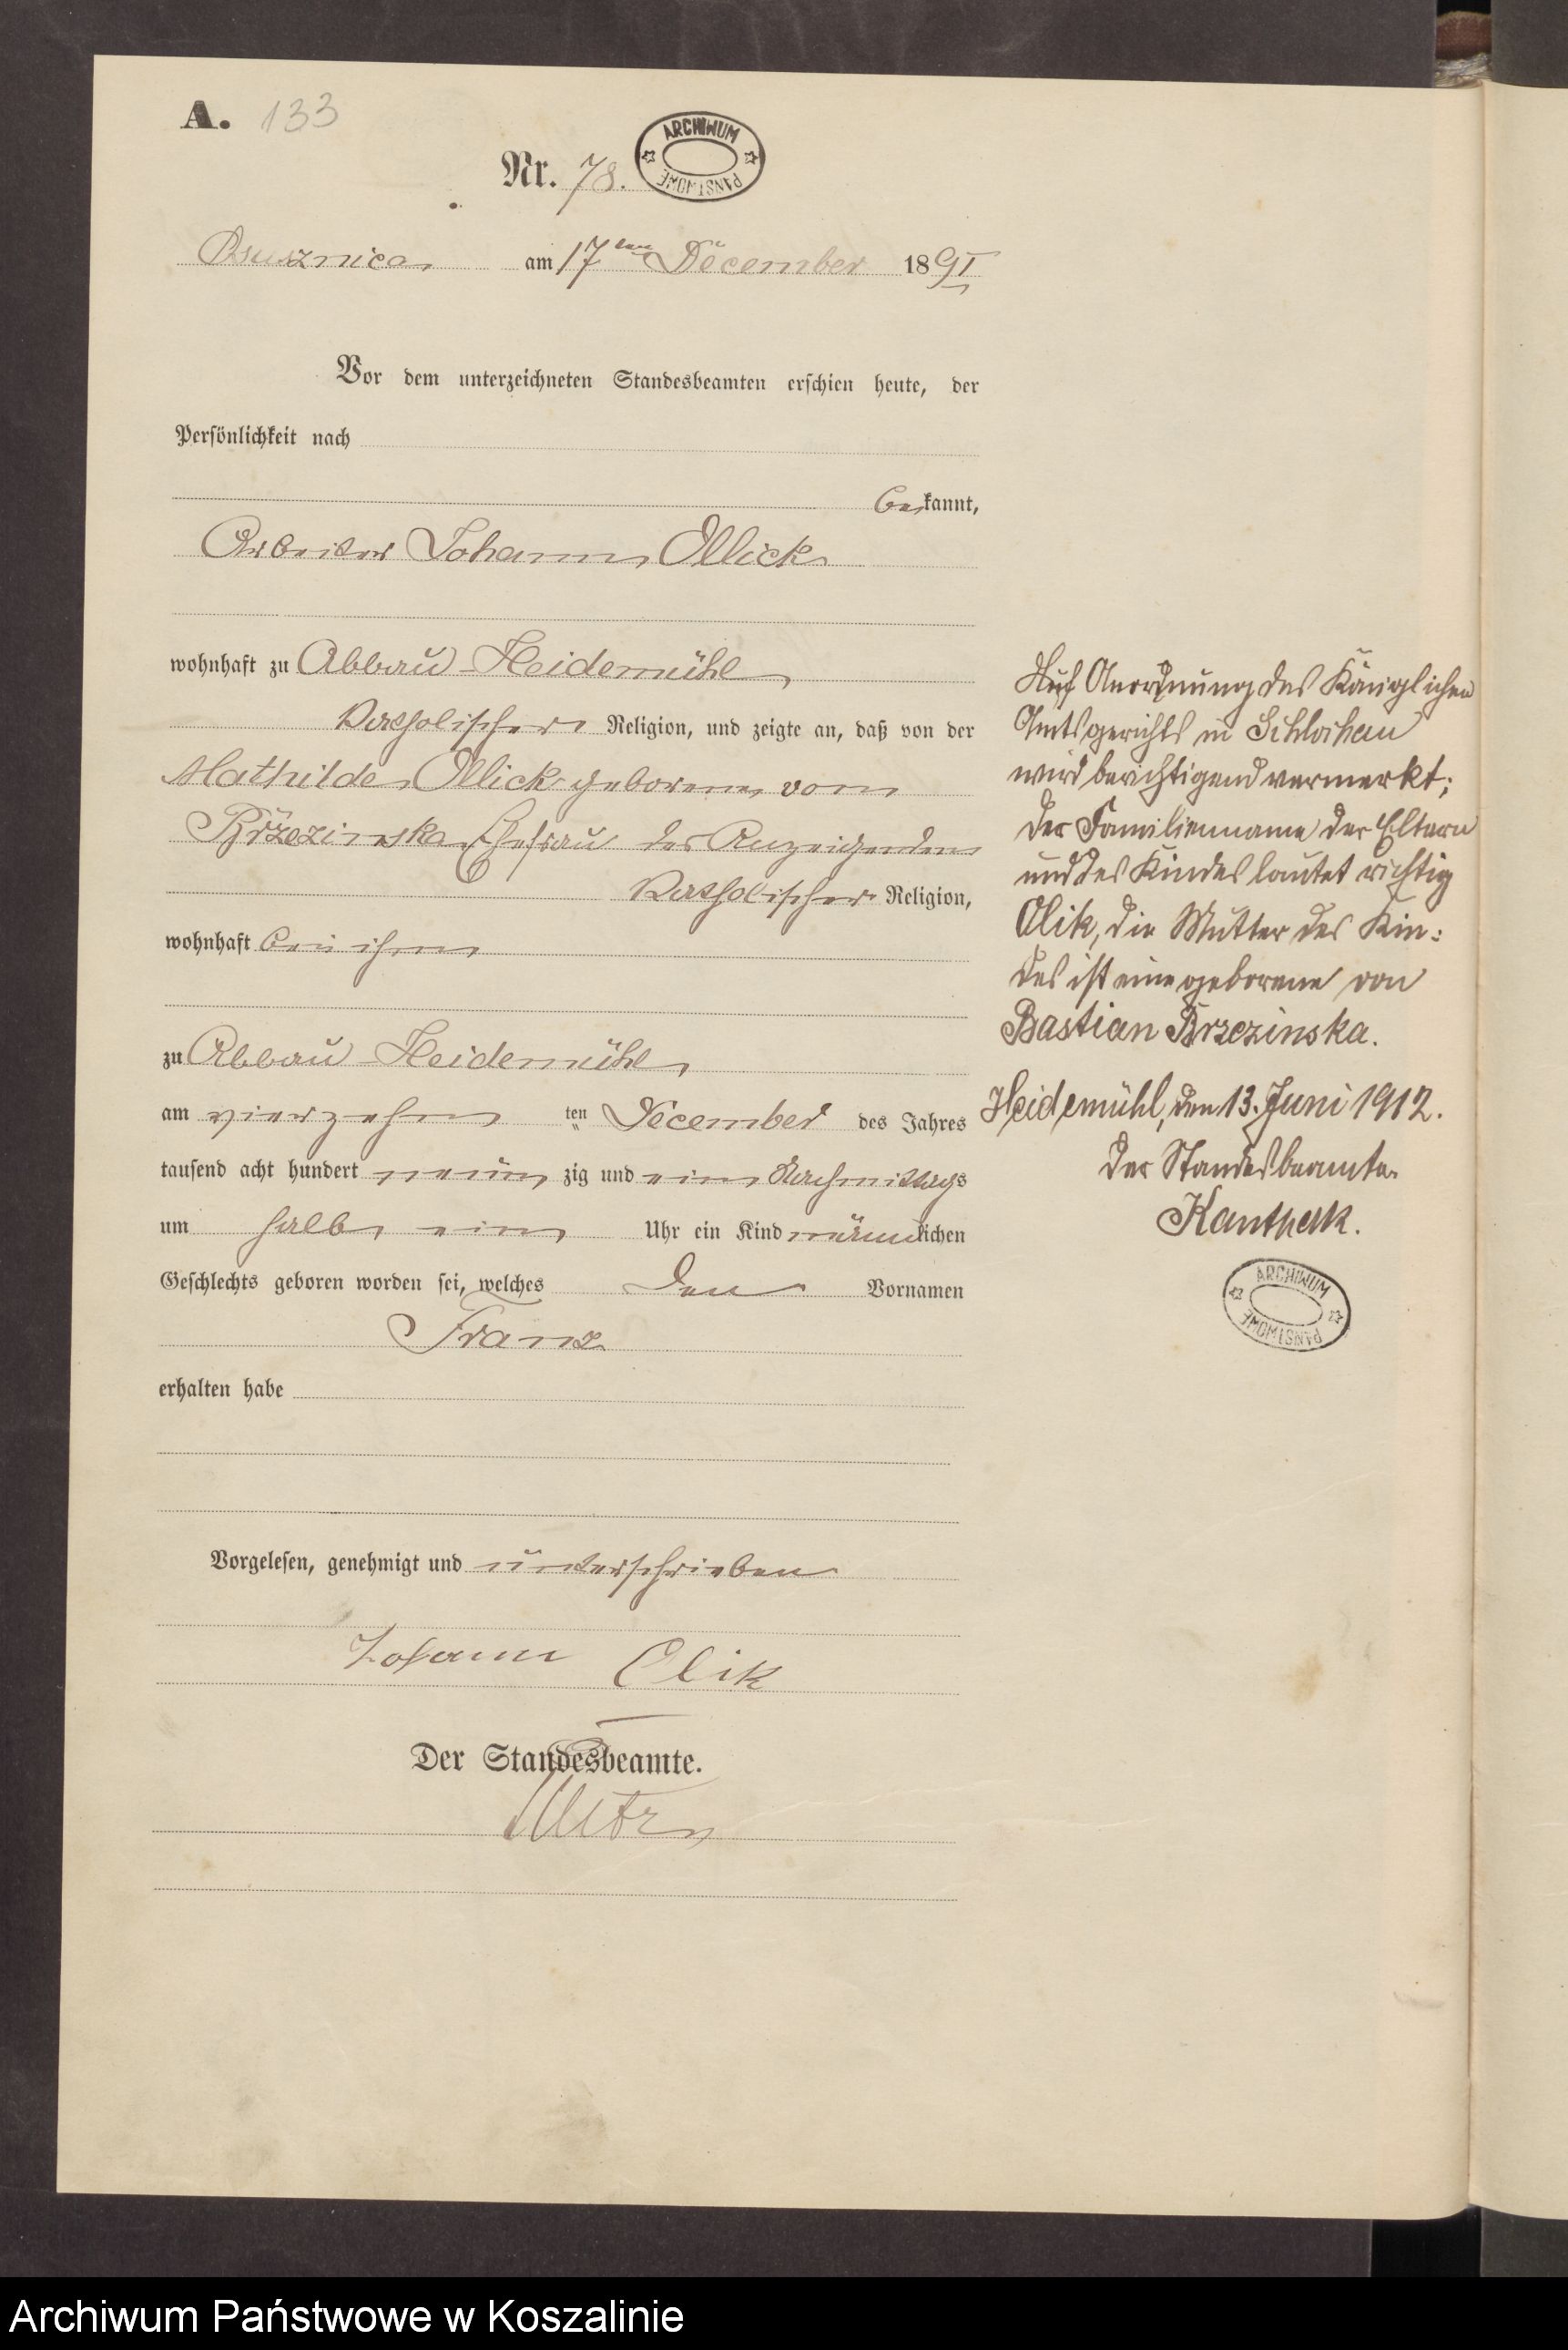 A. 133
Nr. 78.
ARCHIWUM PAŃSTWOWE
am 17ten December 1891
Vor dem unterzeichneten Standesbeamten erschien heute, der
Persönlichkeit nach
bekannt,
Arbeiter Johann Ollick
wohnhaft zu Abbau Heidemühl
katholischer Religion, und zeigte an, daß von der
Mathilde Ollick geborene von
Brzezinska Ehefrau des Anzeigenden
katholischer Religion,
wohnhaft bei ihm
zu Abbau Heidemühl
am vierzehn ten December des Jahres
tausend acht hundert neun zig und ein Nachmittags
um halb ein Uhr ein Kind männlichen
Geschlechts geboren worden sei, welches den Vornamen
Franz
erhalten habe
Vorgelesen, genehmigt und unterschrieben
Johann Olik
Der Standesbeamte.
Auf Anordnung des Königlichen
Amtsgerichts in Schlochau
wird berichtigend vermerkt;
der Familienname der Eltern
und des Kindes lautet richtig
Olik, die Mutter des Kin:
des ist eine geborene von
Bastian Brzezinska.
Heidemühl, den 13. Juni 1912.
Der Standesbeamte
Kanthak.
ARCHIWUM PAŃSTWOWE
Archiwum Państwowe w Koszalinie